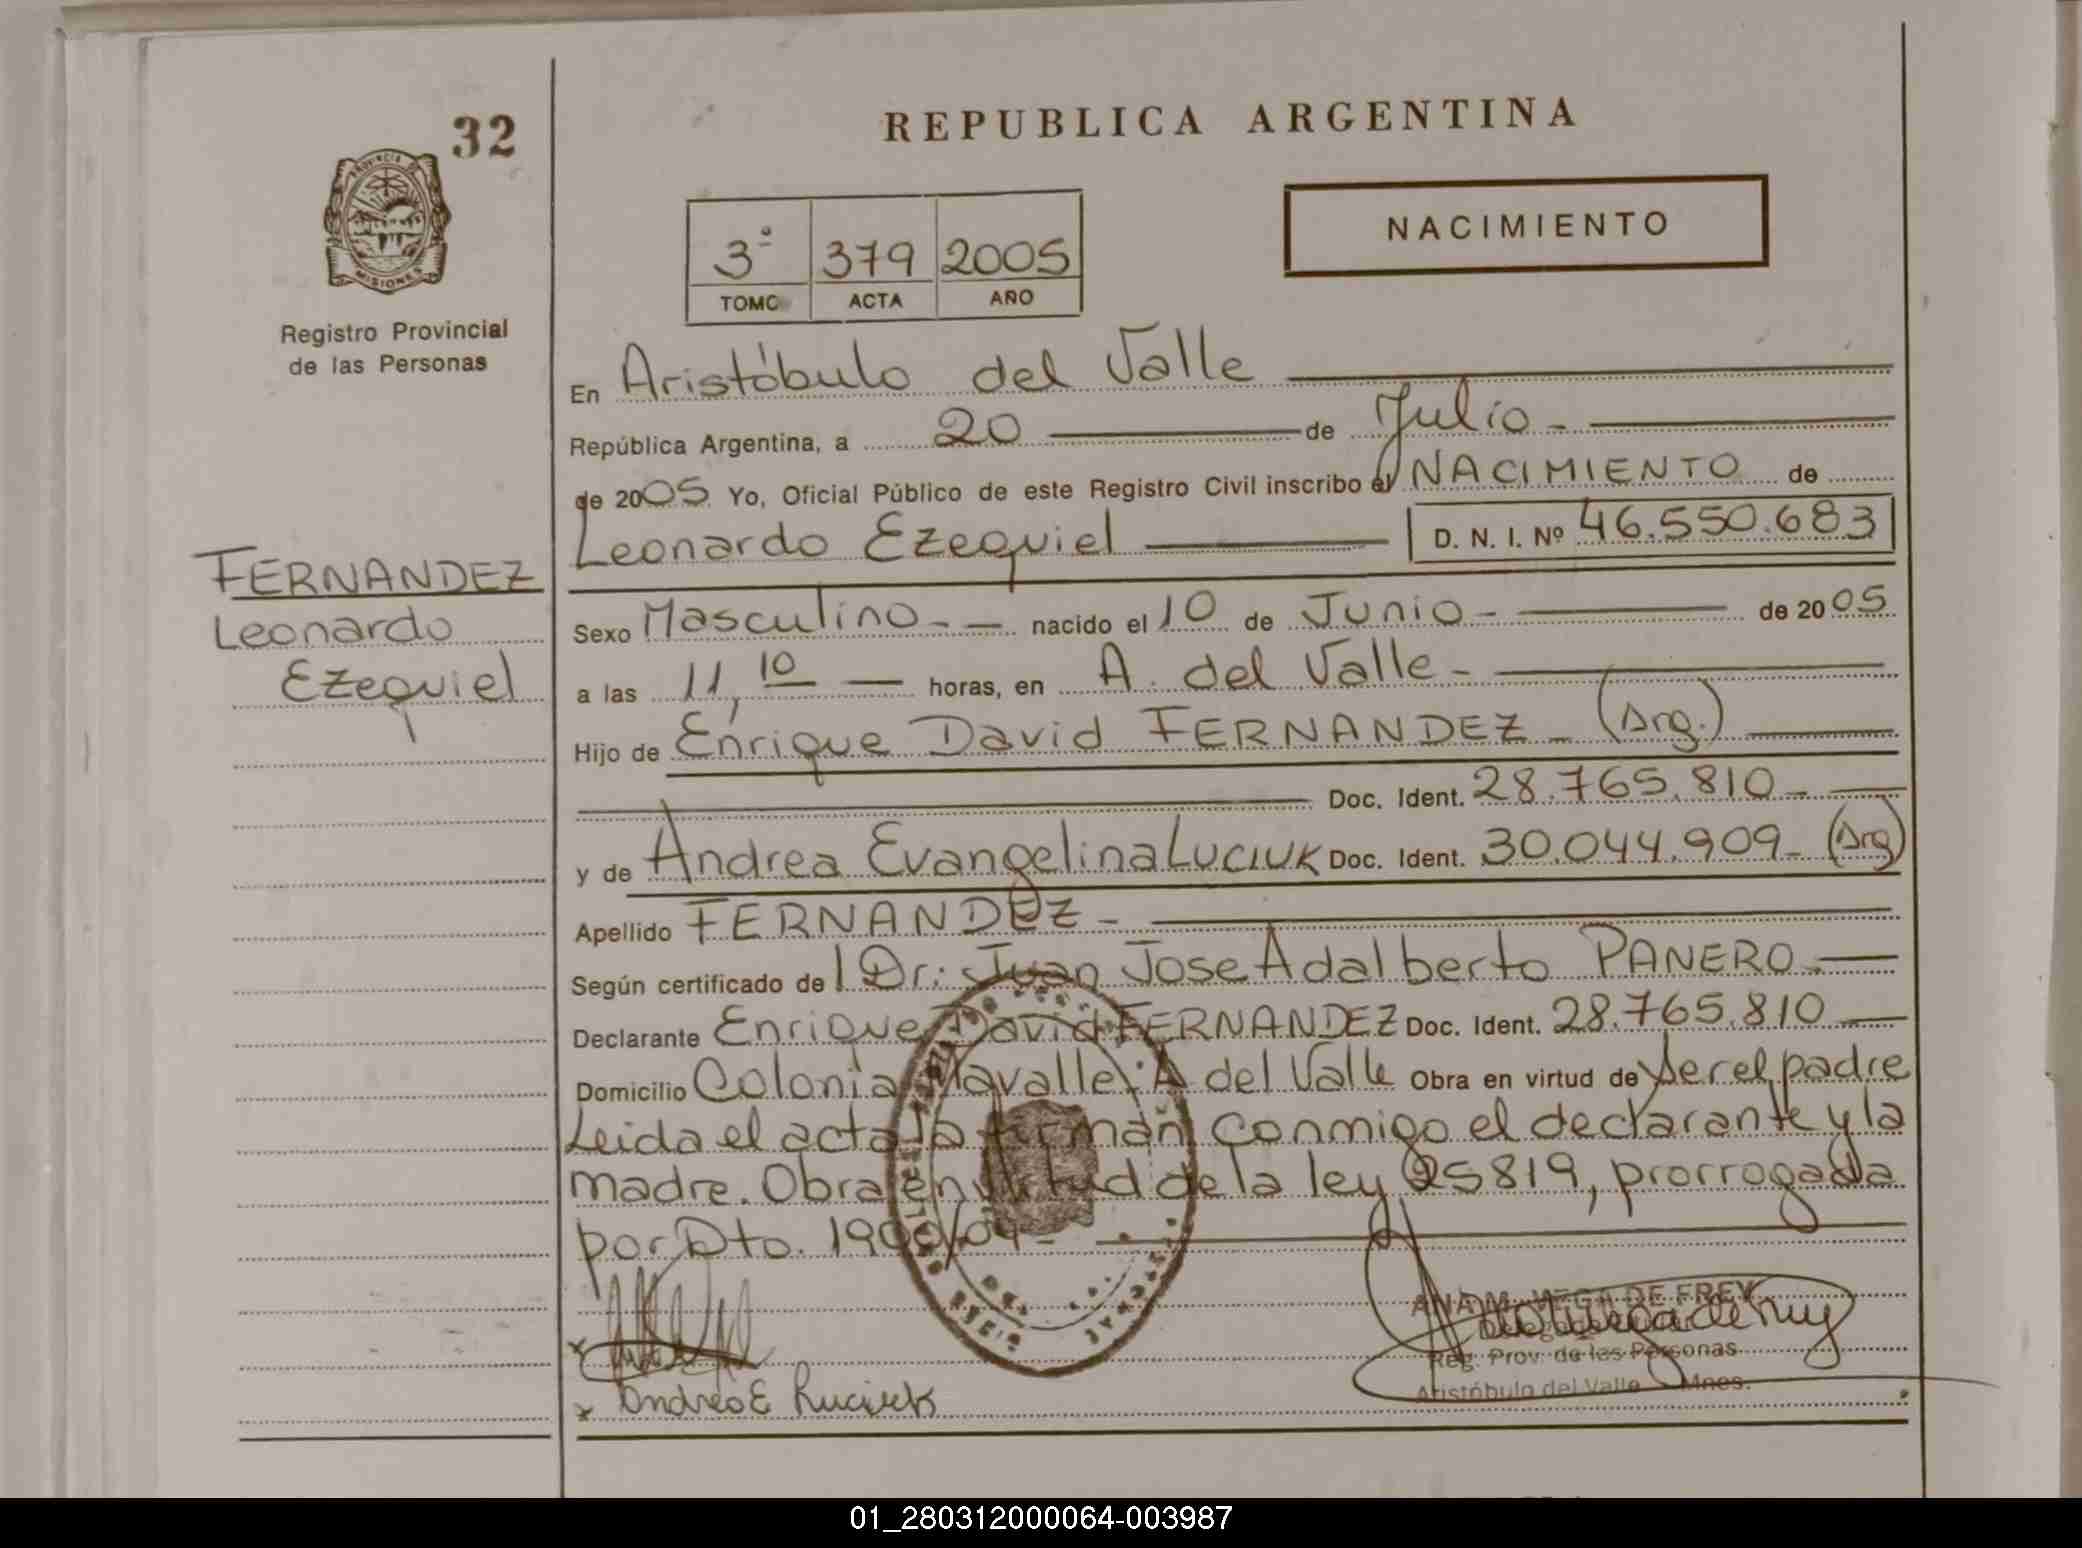 32
PROVINCIA DE
MISIONES
Registro Provincial
de las Personas
FERNANDEZ
Leonardo
Ezequiel
REPUBLICA ARGENTINA
3º 379 2005
TOMO ACTA AÑO
NACIMIENTO
En Aristóbulo del Valle
República Argentina, a 20 de Julio -
de 2005 Yo, Oficial Público de este Registro Civil inscribo el NACIMIENTO de
Leonardo Ezequiel D. N. I. Nº 46.550.683
Sexo Masculino - - nacido el 10 de Junio - de 2005
a las 11,10 — horas, en A. del Valle -
Hijo de Enrique David FERNANDEZ - (Arg.)
Doc. Ident. 28.765.810 -
y de Andrea Evangelina LUCIUK Doc. Ident. 30.044.909 - (Arg)
Apellido FERNANDEZ -
Según certificado de l Dr. Juan Jose Adalberto PANERO. -
Declarante Enrique David FERNANDEZ Doc. Ident. 28.765.810 -
Domicilio Colonia A. del Valle Obra en virtud de ser el padre
Leida el acta la firman conmigo el declarante y la
madre. Obra en virtud de la ley 25819, prorrogada
por Dto.
Andrea E Luciuk
ANA M. VEGA DE FREY
Reg. Prov. de las Personas
Aristóbulo del Valle - Mnes.
01_280312000064-003987